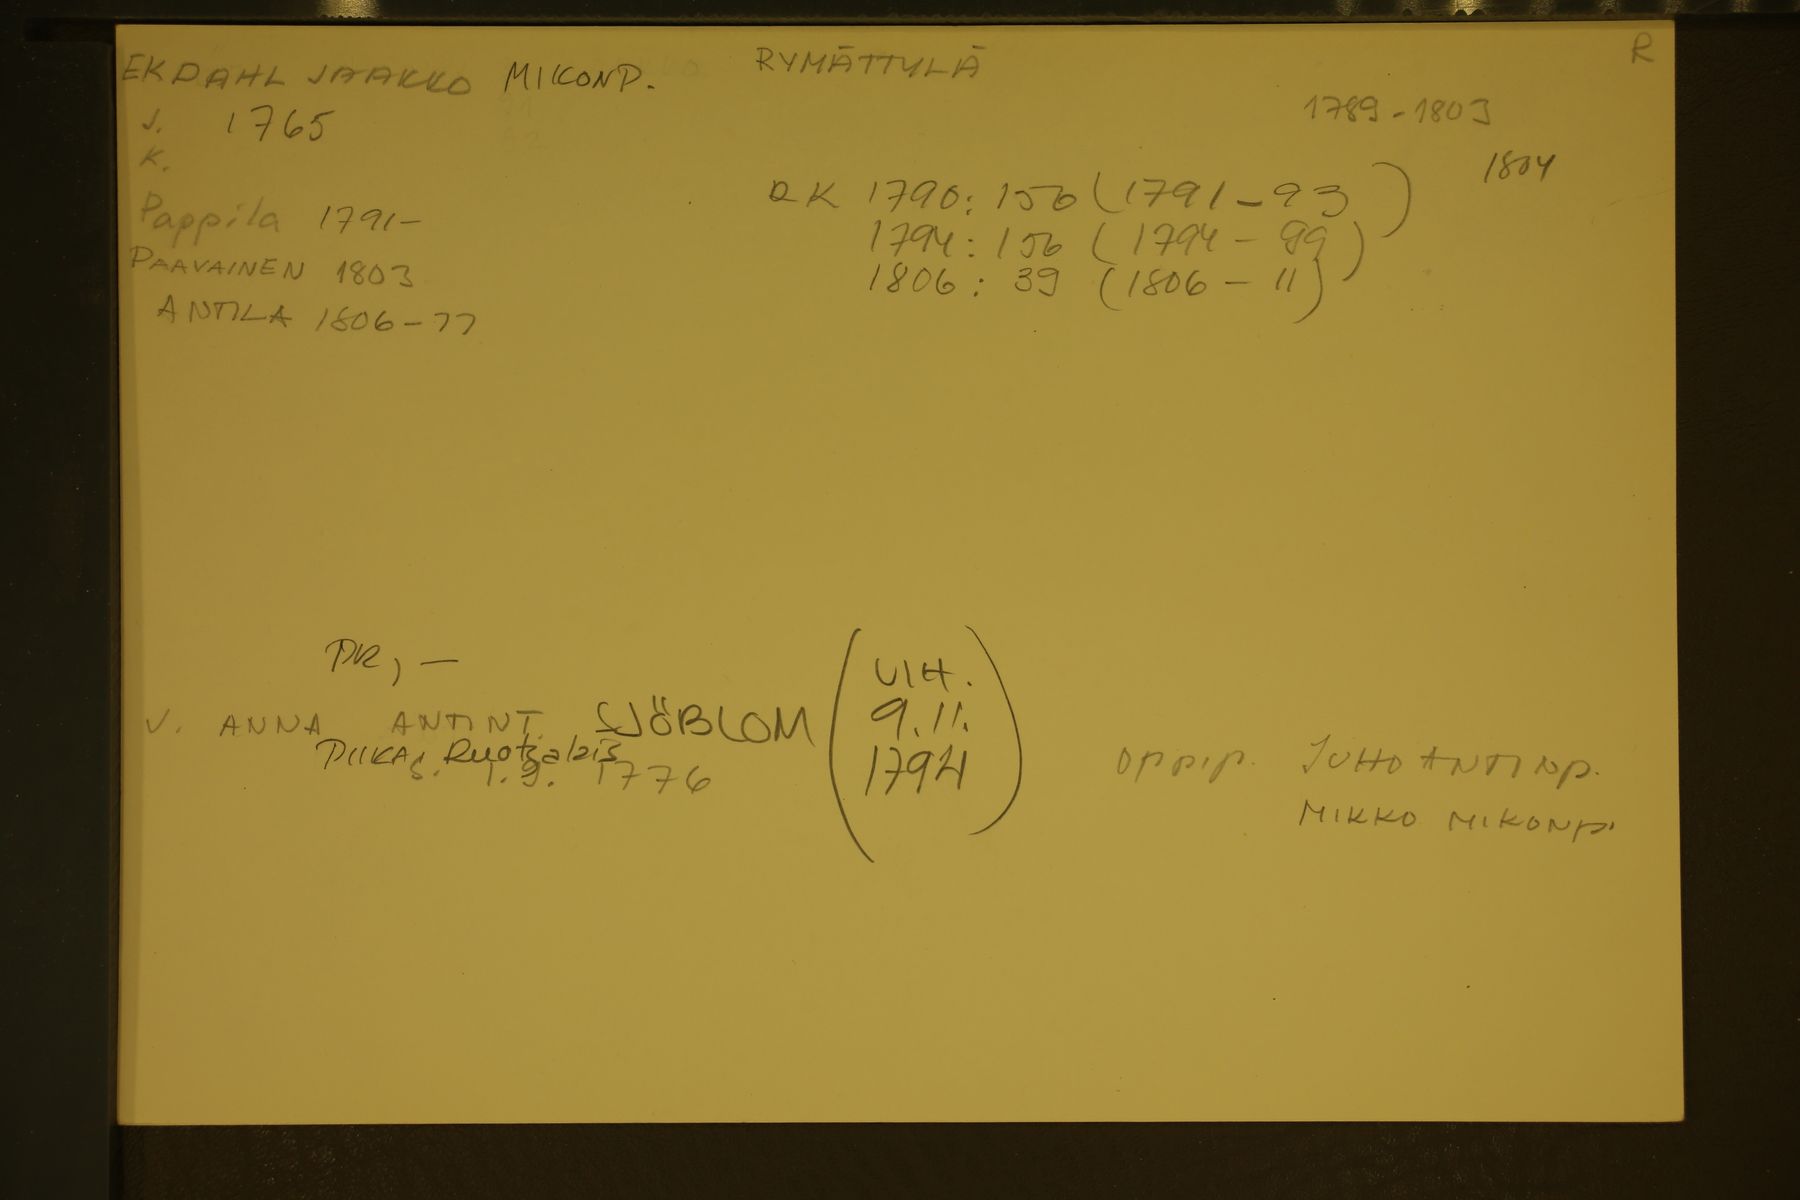 EKDAHL JAAKKO MIKONP. RYMÄTTYLÄ R
S. 1765 1789-1803
K. 1804
RK 1790: 156 (1791-93)
Pappila 1791-
1794: 156 (1794-99)
PAAVAINEN 1803
1806: 39 (1806-11)
ANTILA 1806-11
PR, —
V. ANNA ANTINT. SJÖBLOM (VIH. 9.11. 1794)
PIIKA, Ruotsalais
S. 1.9. 1776
OPPIP. JUHO ANTINP.
MIKKO MIKONP.